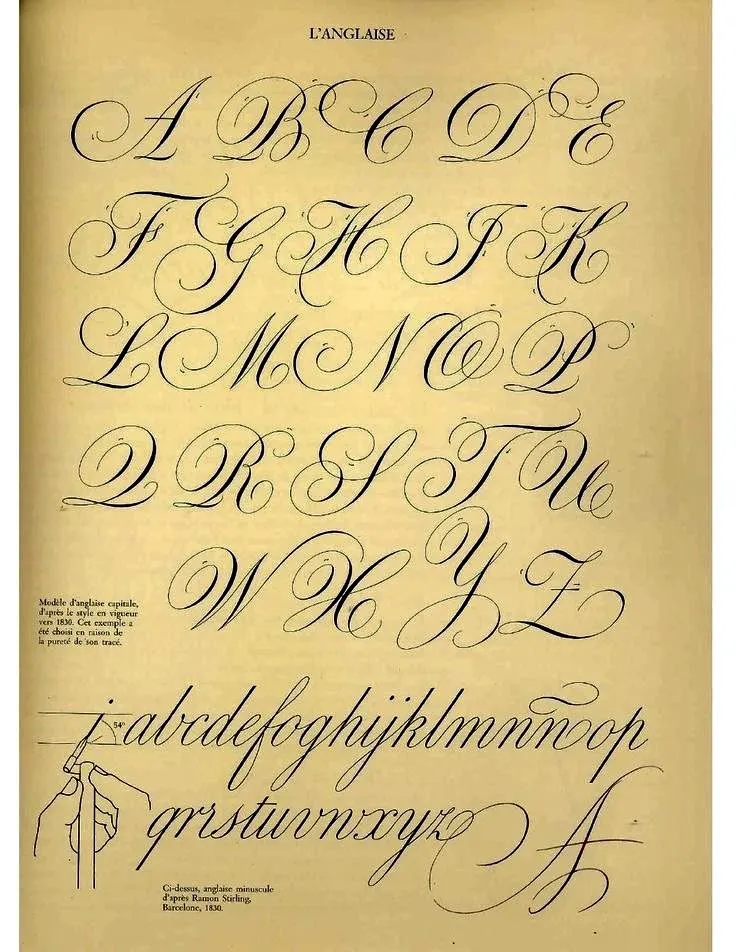 L'ANGLAISE
A B C D E
F G H I K
L M N O P
Q R S T U
W X Y Z
Modèle d'anglaise capitale,
d'après le style en vigueur
vers 1830. Cet exemple a
été choisi en raison de
la pureté de son tracé.
54°
i abcdefoghijklmnñop
qrrstuvnwxyz A
Ci-dessus, anglaise minuscule
d'après Ramon Stirling,
Barcelone, 1830.